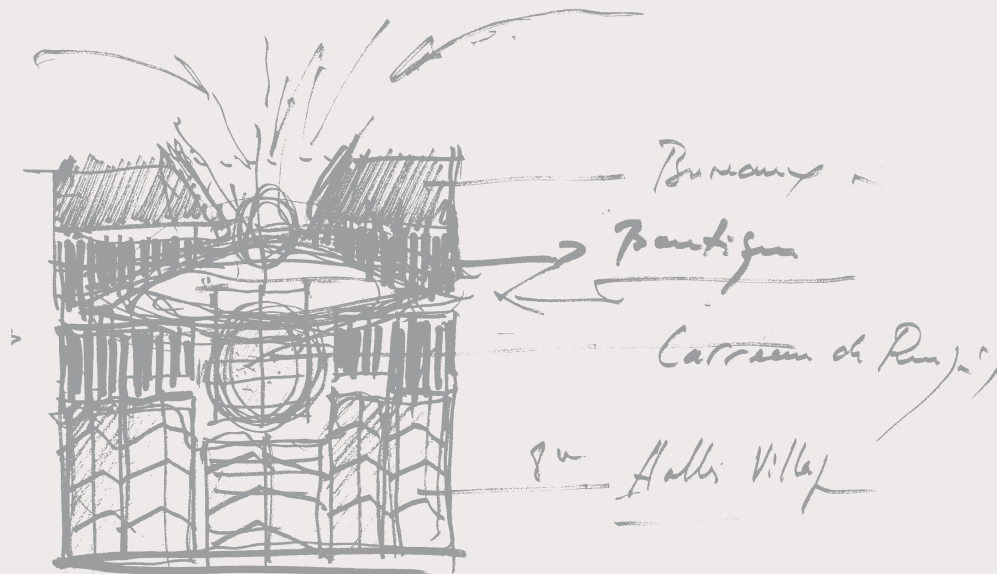 Bureaux
Boutique
Carreau de Rungis
8m Halles Village